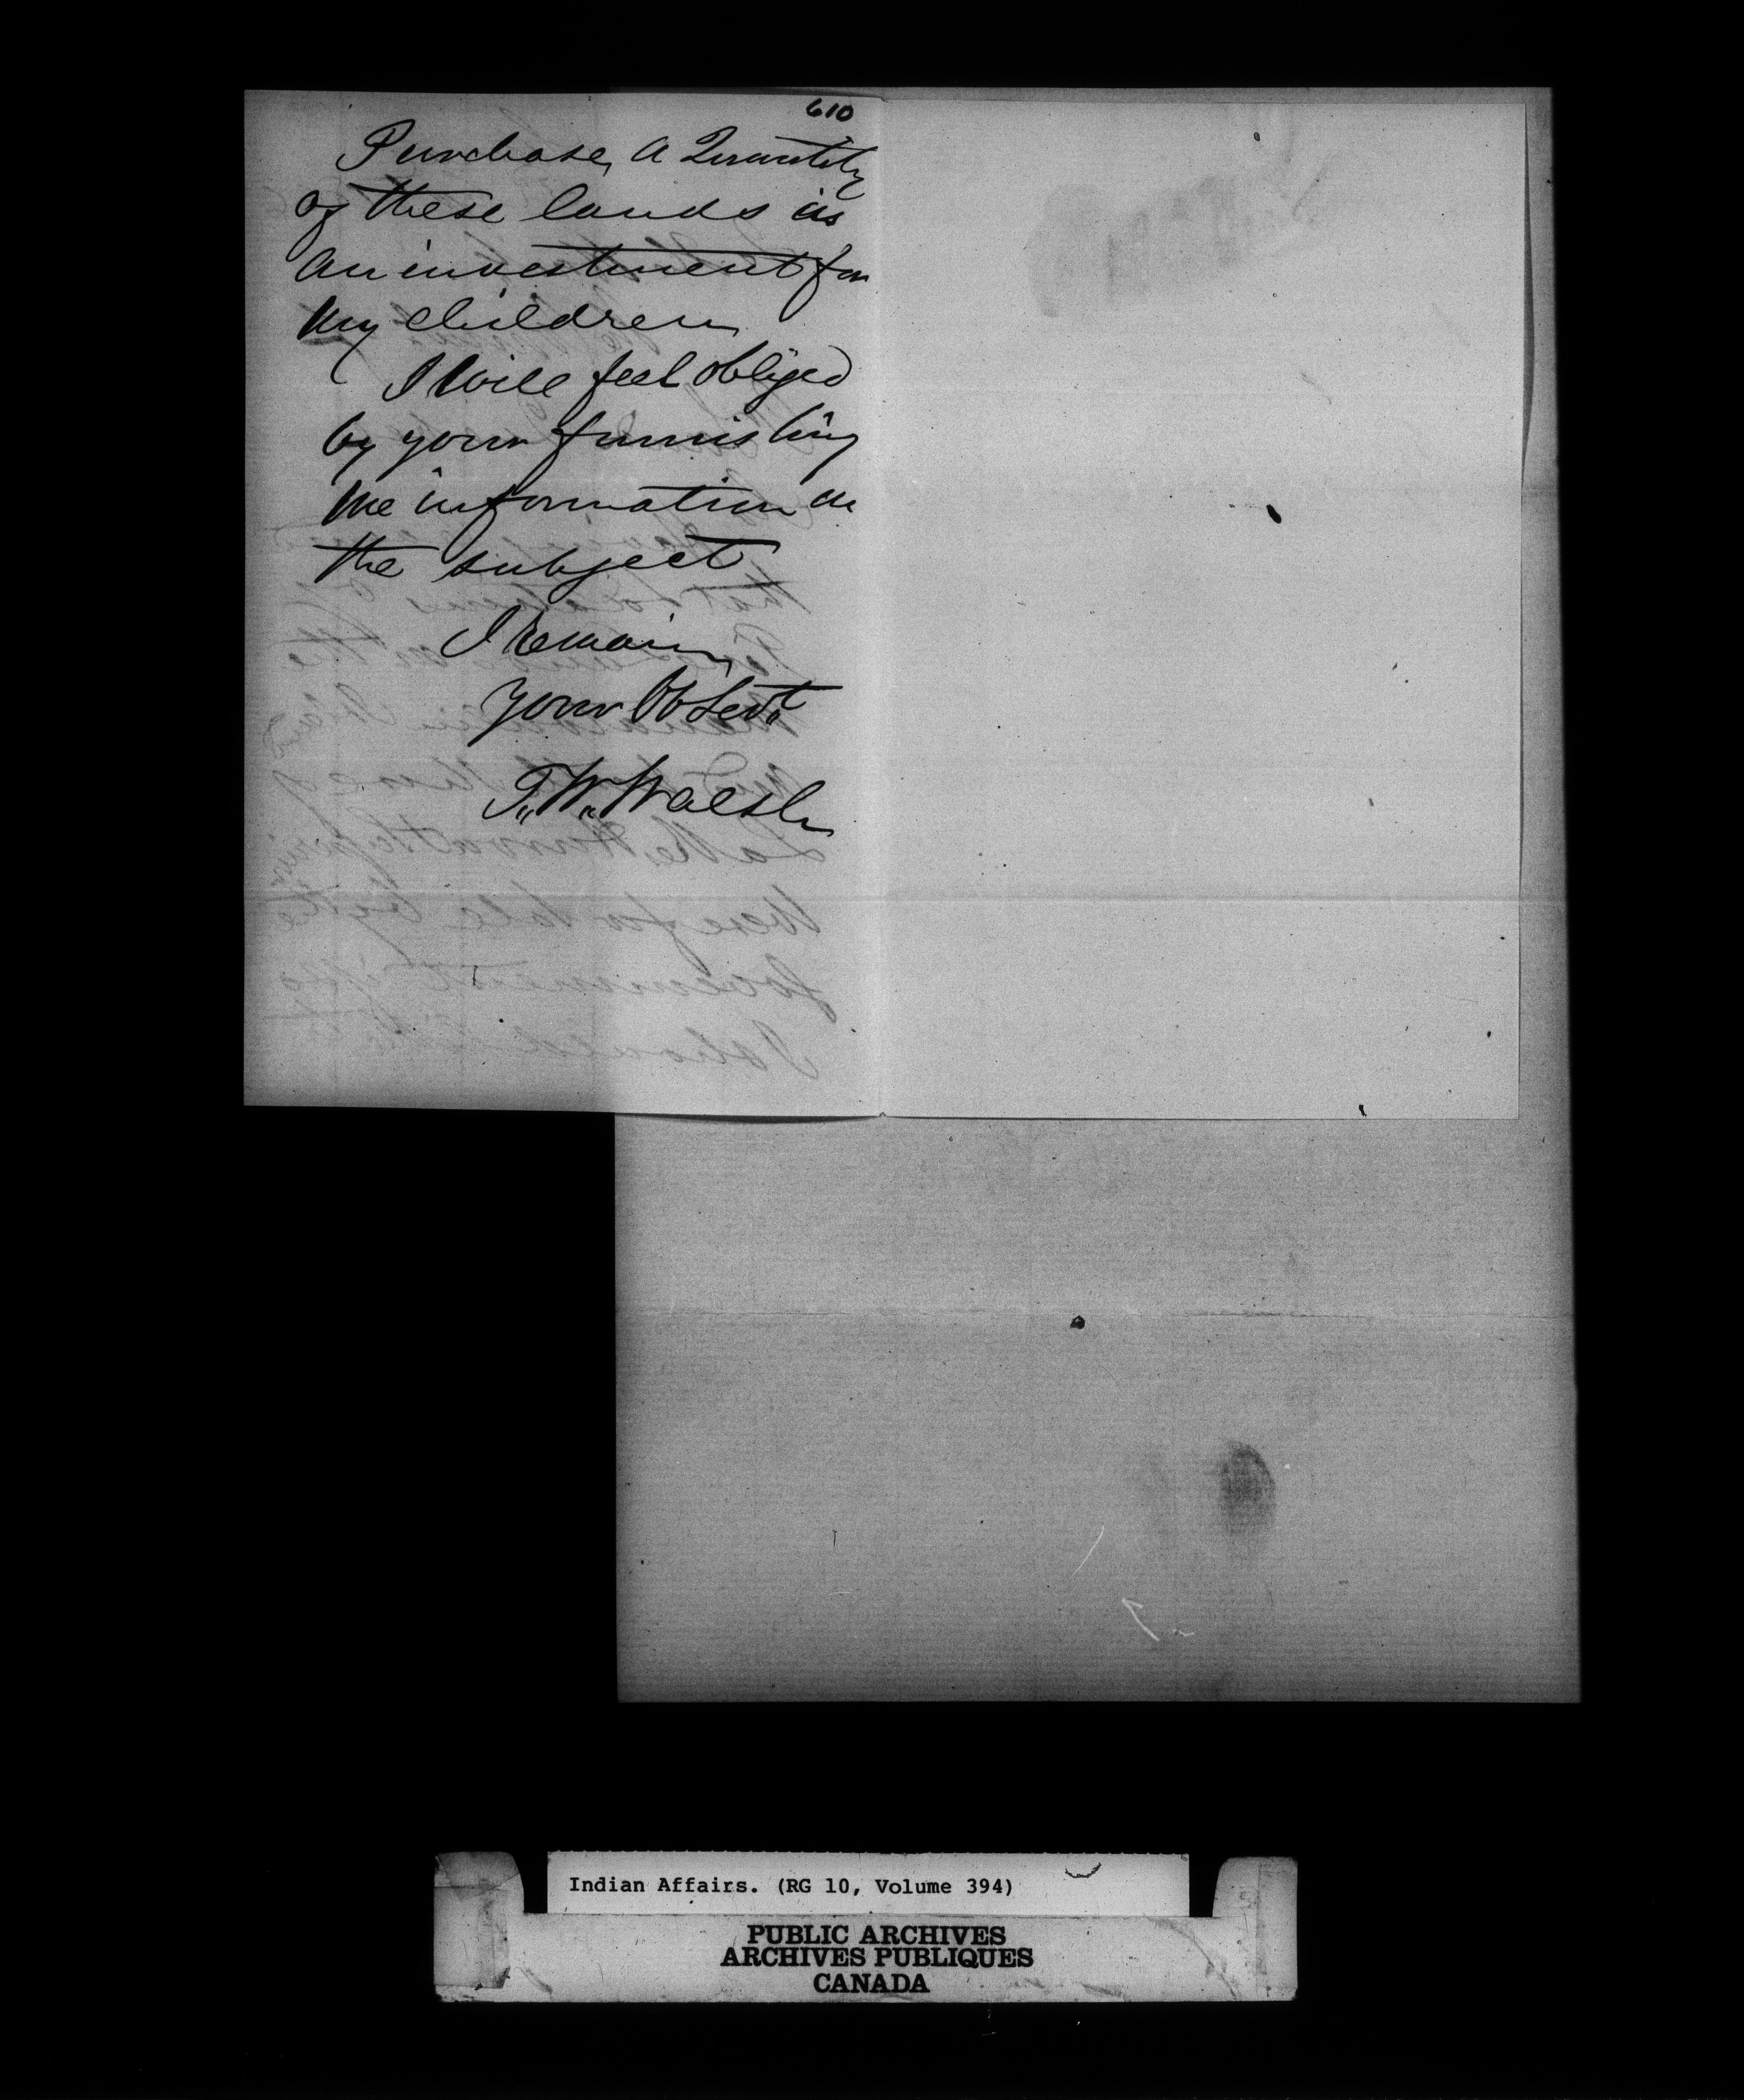 610
Purchase, a Quantity
of these lands as
an investment for
my children
I will feel obliged
by your furnishing
me information on
the subject
I remain
Your Ob Sevt
T. W. Walsh
Indian Affairs. (RG 10, Volume 394)
PUBLIC ARCHIVES
ARCHIVES PUBLIQUES
CANADA